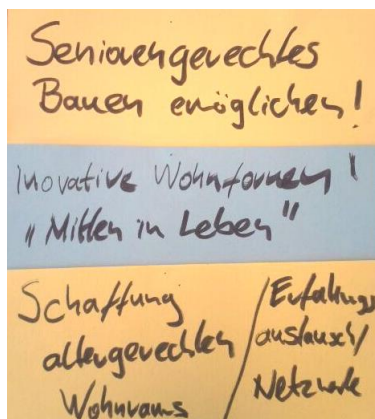 Seniorengerechtes
Bauen emöglichen!
Inovative Wohnformen!
"Mitten in Leben"
Schaffung
altergerechten
Wohnraums
/ Erfahrungs
austausch/
Netzwerke